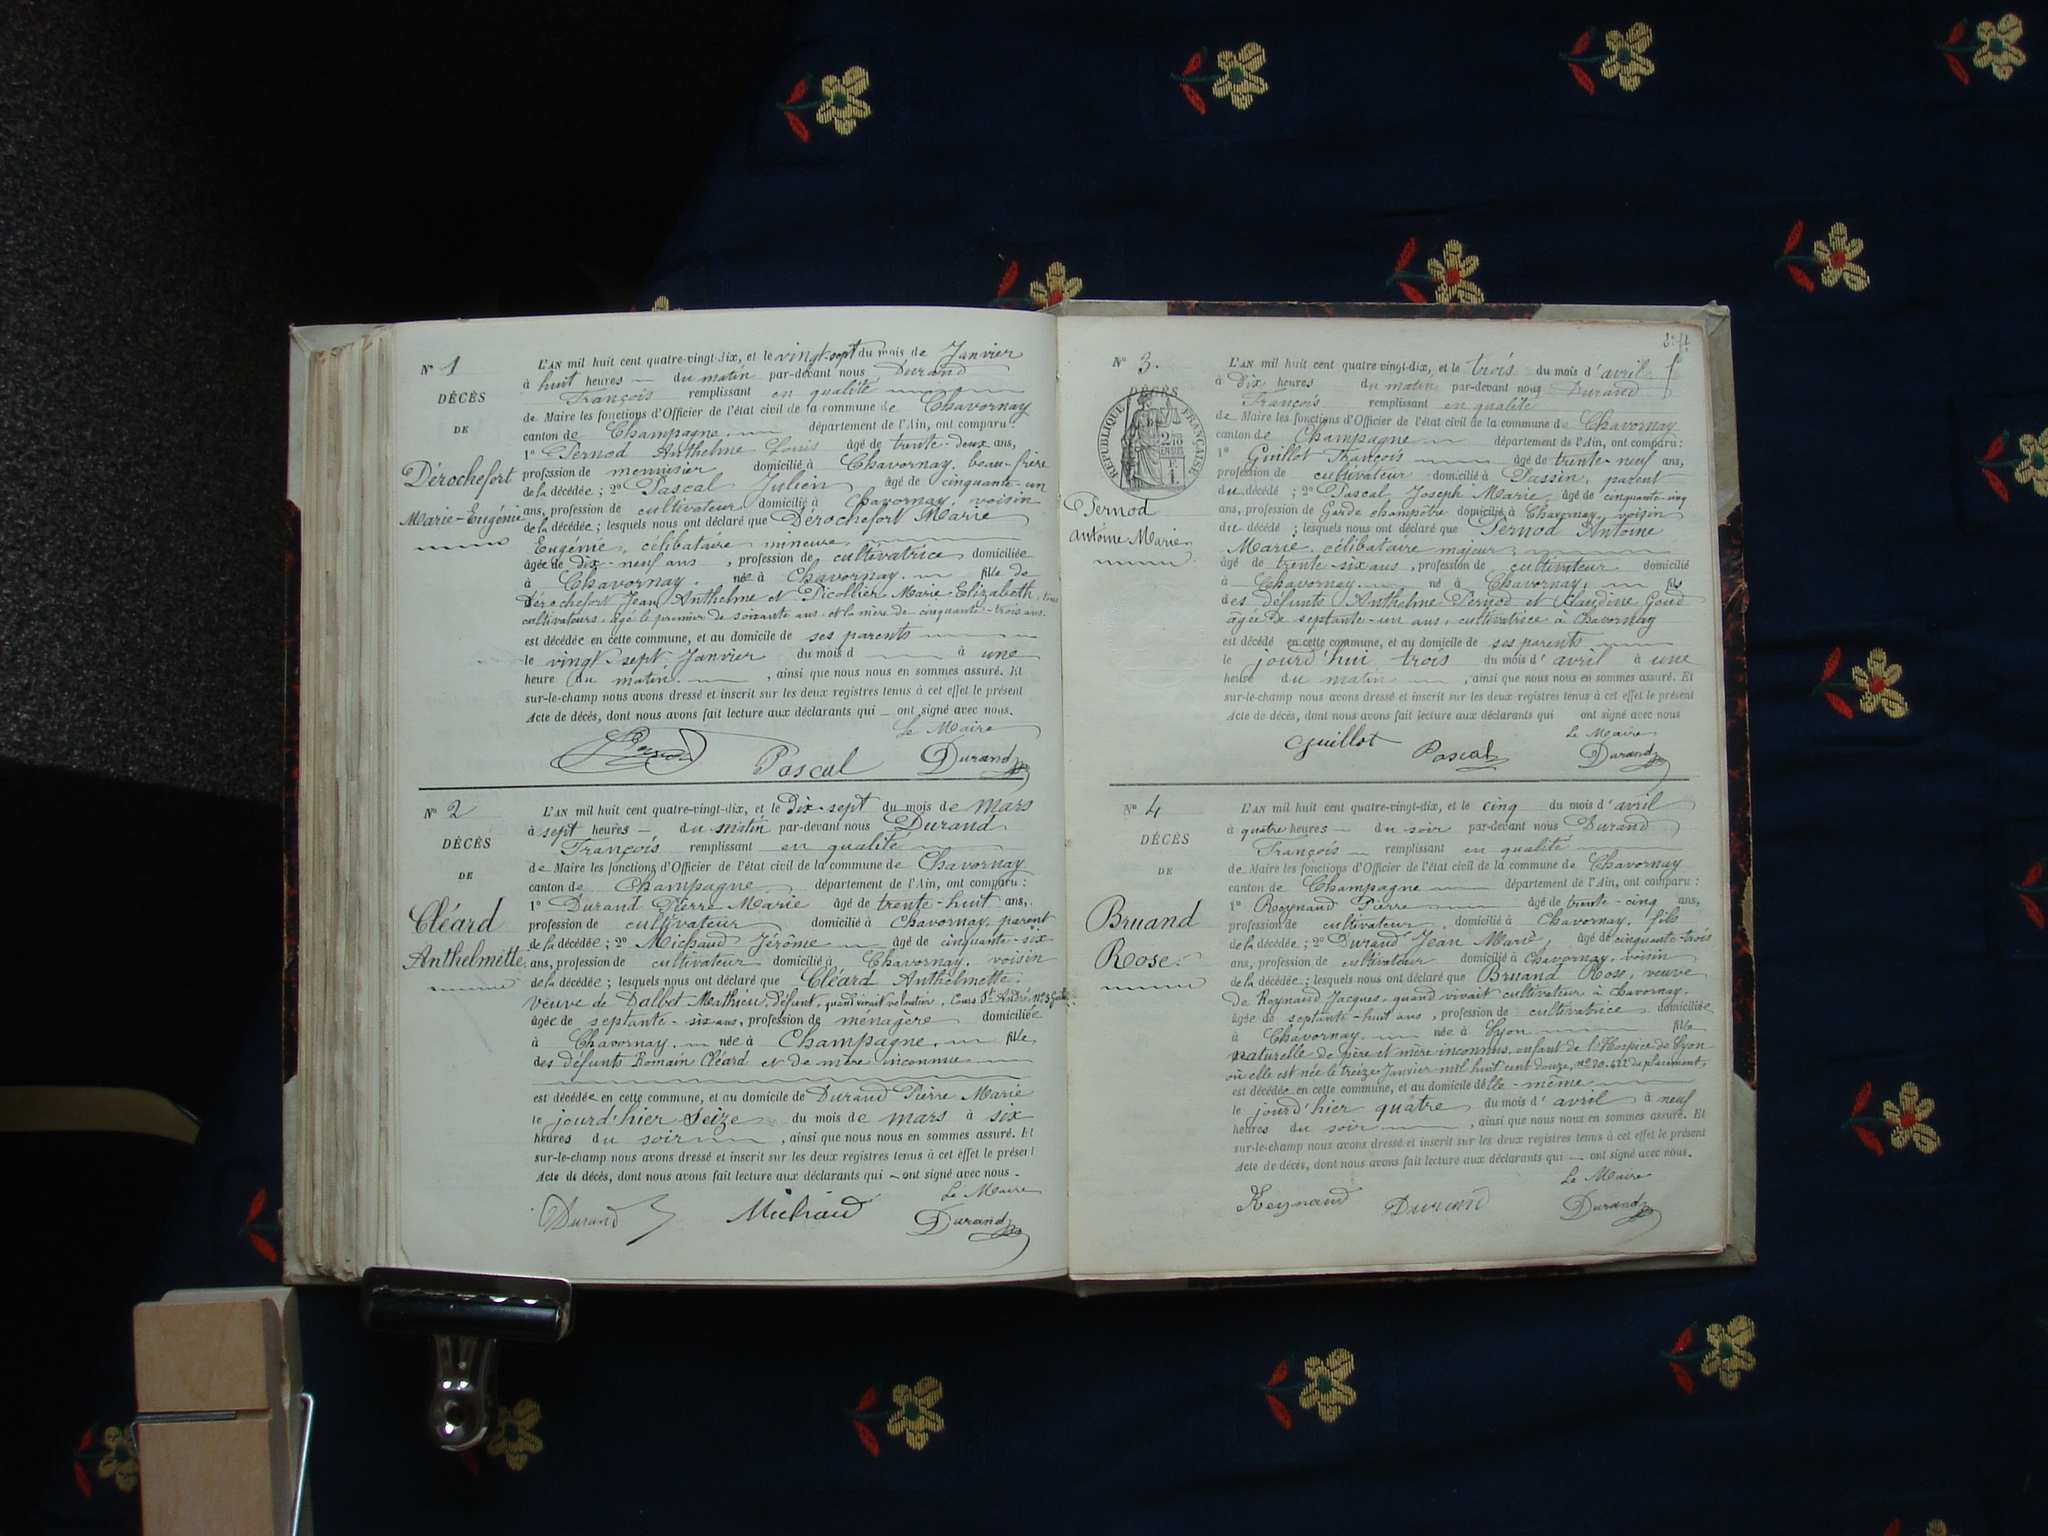 N° 1
DÉCÈS
DE
Dérochefort
Marie-Eugénie
L'AN mil huit cent quatre-vingt-dix, et le vingt-sept du mois de Janvier
à huit heures du matin par-devant nous Durand
François remplissant en qualité
de Maire les fonctions d'Officier de l'état civil de la commune de Chavornay
canton de Champagne département de l'Ain, ont comparu :
1° Pernod Anthelme Louis âgé de trente-deux ans,
profession de menuisier domicilié à Chavornay, beau-frère
de la décédée ; 2° Pascal Julien âgé de cinquante-un
ans, profession de cultivateur domicilié à Chavornay, voisin
de la décédée ; lesquels nous ont déclaré que Dérochefort Marie
Eugénie, célibataire mineure,
âgée de dix-neuf ans, profession de cultivatrice domiciliée
à Chavornay. née à Chavornay. fille de
Dérochefort Jean Anthelme et Picollier Marie Elizabeth, tous
cultivateurs, âgé le premier de soixante ans et la mère de cinquante-trois ans.
est décédée en cette commune, et au domicile de ses parents
le vingt-sept Janvier du mois d à une
heure du matin, ainsi que nous nous en sommes assuré. Et
sur-le-champ nous avons dressé et inscrit sur les deux registres tenus à cet effet le présent
Acte de décès, dont nous avons fait lecture aux déclarants qui ont signé avec nous.
Le Maire
Pascal Durand
N° 2
DÉCÈS
DE
Cléard
Anthelmette
L'AN mil huit cent quatre-vingt-dix, et le dix-sept du mois de mars
à sept heures du matin par-devant nous Durand
François remplissant en qualité
de Maire les fonctions d'Officier de l'état civil de la commune de Chavornay
canton de Champagne département de l'Ain, ont comparu :
1° Durand Pierre Marie âgé de trente-huit ans,
profession de cultivateur domicilié à Chavornay, parent
de la décédée ; 2° Michaud Jérôme âgé de cinquante-six
ans, profession de cultivateur domicilié à Chavornay, voisin
de la décédée ; lesquels nous ont déclaré que Cléard Anthelmette,
veuve de Dalbet Mathieu, défunt, quand vivait Cours St André, N° 3
âgée de septante-six ans, profession de ménagère domiciliée
à Chavornay. née à Champagne. fille
des défunts Romain Cléard et de mère inconnue
est décédée en cette commune, et au domicile de Durand Pierre Marie
le jourd'hier seize du mois de mars à six
heures du soir, ainsi que nous nous en sommes assuré. Et
sur-le-champ nous avons dressé et inscrit sur les deux registres tenus à cet effet le présent
Acte de décès, dont nous avons fait lecture aux déclarants qui ont signé avec nous.
Le Maire
Durand Michaud Durand
N° 3.
DÉCÈS
RÉPUBLIQUE FRANÇAISE
Pernod
Antoine Marie
L'AN mil huit cent quatre-vingt-dix, et le trois du mois d'avril
à dix heures du matin par-devant nous Durand
François remplissant en qualité
de Maire les fonctions d'Officier de l'état civil de la commune de Chavornay
canton de Champagne département de l'Ain, ont comparu :
1° Guillot François âgé de trente-neuf ans,
profession de cultivateur domicilié à Passin, parent
du décédé ; 2° Pascal Joseph Marie, âgé de cinquante-cinq
ans, profession de Garde champêtre domicilié à Chavornay, voisin
du décédé ; lesquels nous ont déclaré que Pernod Antoine
Marie, célibataire majeur,
âgé de trente-six ans, profession de cultivateur domicilié
à Chavornay. né à Chavornay, fils
des défunts Anthelme Pernod et Claudine
âgée de septante-un ans, cultivatrice à Chavornay
est décédé en cette commune, et au domicile de ses parents
le jourd'hui trois du mois d'avril à une
heure du matin, ainsi que nous nous en sommes assuré. Et
sur-le-champ nous avons dressé et inscrit sur les deux registres tenus à cet effet le présent
Acte de décès, dont nous avons fait lecture aux déclarants qui ont signé avec nous
Le Maire
Guillot Pascal Durand
N° 4
DÉCÈS
DE
Bruand
Rose
L'AN mil huit cent quatre-vingt-dix, et le cinq du mois d'avril
à quatre heures du soir par-devant nous Durand
François remplissant en qualité
de Maire les fonctions d'Officier de l'état civil de la commune de Chavornay
canton de Champagne département de l'Ain, ont comparu :
1° Reynaud Pierre âgé de trente-cinq ans,
profession de cultivateur, domicilié à Chavornay, fils
de la décédée ; 2° Durand Jean Marie, âgé de cinquante-trois
ans, profession de cultivateur domicilié à Chavornay, voisin
de la décédée ; lesquels nous ont déclaré que Bruand Rose, veuve
de Reynaud Jacques, quand vivait cultivateur à Chavornay.
âgée de septante-huit ans, profession de cultivatrice domiciliée
à Chavornay. née à Lyon fille
naturelle de père et mère inconnus, enfant de l'Hospice de Lyon
où elle est née le treize Janvier mil huit cent douze,
est décédée en cette commune, et au domicile d'elle-même
le jourd'hier quatre du mois d'avril à neuf
heures du soir, ainsi que nous nous en sommes assuré. Et
sur-le-champ nous avons dressé et inscrit sur les deux registres tenus à cet effet le présent
Acte de décès, dont nous avons fait lecture aux déclarants qui ont signé avec nous.
Le Maire
Reynaud Durand Durand